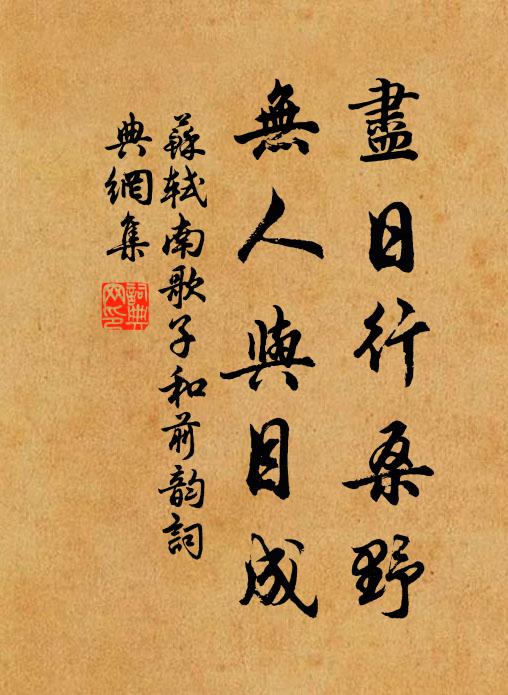 盡日行桑野
無人與目成
蘇軾南歌子和前韵詞
典網集
詞典網印